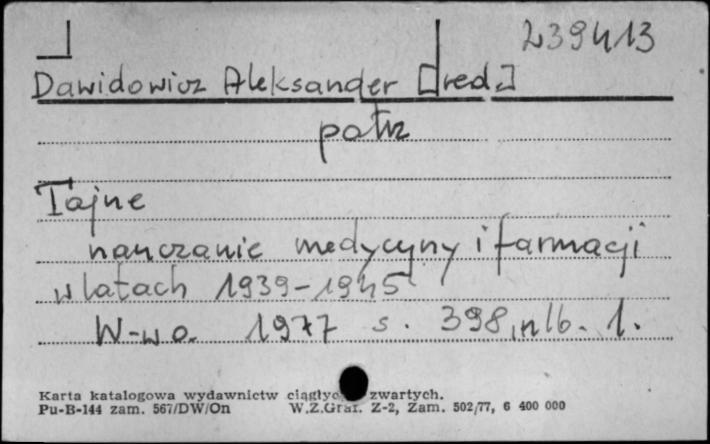 239413
Dawidowicz Aleksander [red.]
patrz
Tajne
nauczanie medycyny i farmacji
w latach 1939-1945
W-wa. 1977 s. 398, nlb. 1.
Karta katalogowa wydawnictw zwartych.
Pu-B-144 zam. 567/DW/On W.Z.Graf. Z-2, Zam. 502/77, 6 400 000